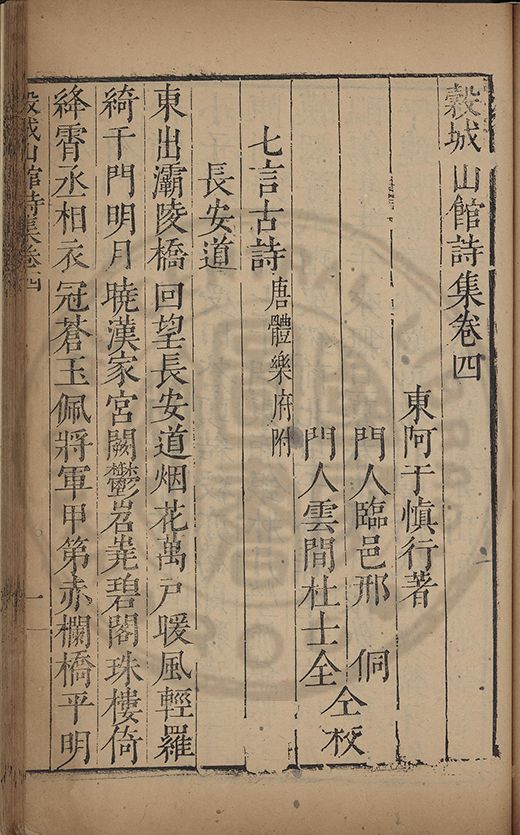 穀城山館詩集卷四
東阿于慎行著
門人臨邑邢侗
門人雲間杜士全
仝校
七言古詩 唐體樂府附
長安道
東出灞陵橋回望長安道烟花萬戶暖風輕羅
綺千門明月曉漢家宮闕鬱岧嶤碧閣珠樓倚
絳霄丞相衣冠蒼玉佩將軍甲第赤欄橋平明
穀城山館詩集卷四
一